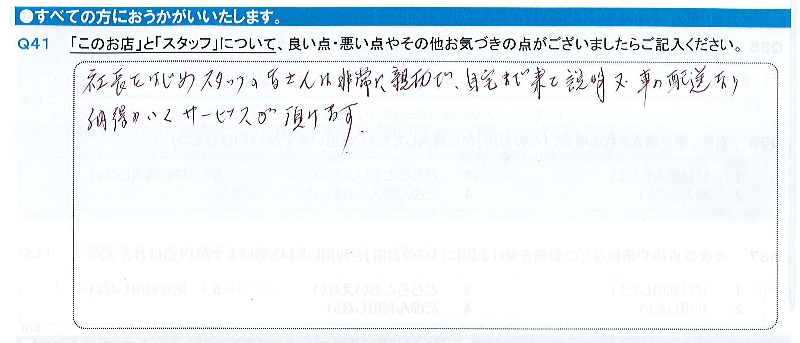 ●すべての方におうかがいいたします。
Q41 「このお店」と「スタッフ」について、良い点・悪い点やその他お気づきの点がございましたらご記入ください。
社長をはじめスタッフの皆さんは非常に親切で、自宅まで来て説明又、車の配送など
納得のいくサービスが頂けます。